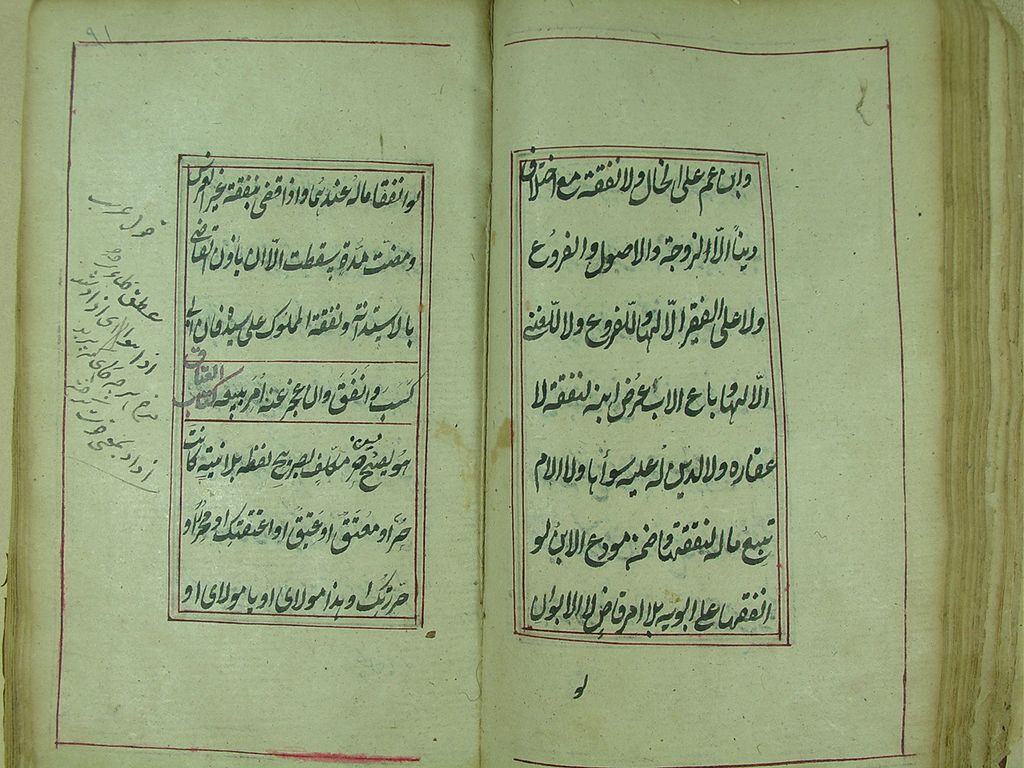 وابن عم على الخال ولا نفقة مع اختلاف
دينا الا الزوجة والاصول والفروع
ولا على الفقير الا لها وللفروع ولا للغني
الا لها وباع الاب عرض ابنه لنفقة لا
عقاره ولا لدين له عليه سواها ولا الام
تبيع ماله لنفقتها وضمن مودع الابن لو
انفقها على ابويه بلا امر قاض لا الابوان
لو
٩١
لو انفقا ماله عندهما واذا قضى بنفقة غير العرس
ومضت مدة سقطت الا ان ياذن القاضي
بالاستدانة ونفقة المملوك على سيده فان ابى
كسب وانفق وان عجز عنه امر ببيعه كتاب العتاق
هو يصح من حر مكلف بصريح لفظه بلا نية كانت
حر او معتق او عتيق او اعتقتك او محرر او
حررتك او هذا مولاي او يا مولاي او